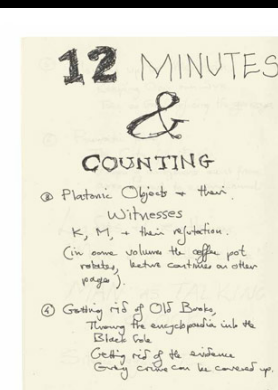 12 MINUTES
&
COUNTING
Platonic Objects + their
Witnesses
K, M, + their refutation.
(in some volumes the coffee pot
rotates, lecture continues on other
pages).
④ Getting rid of Old Books,
Throwing the encyclopaedia into the
Black hole
Getting rid of the evidence
Gray crime can be covered up.